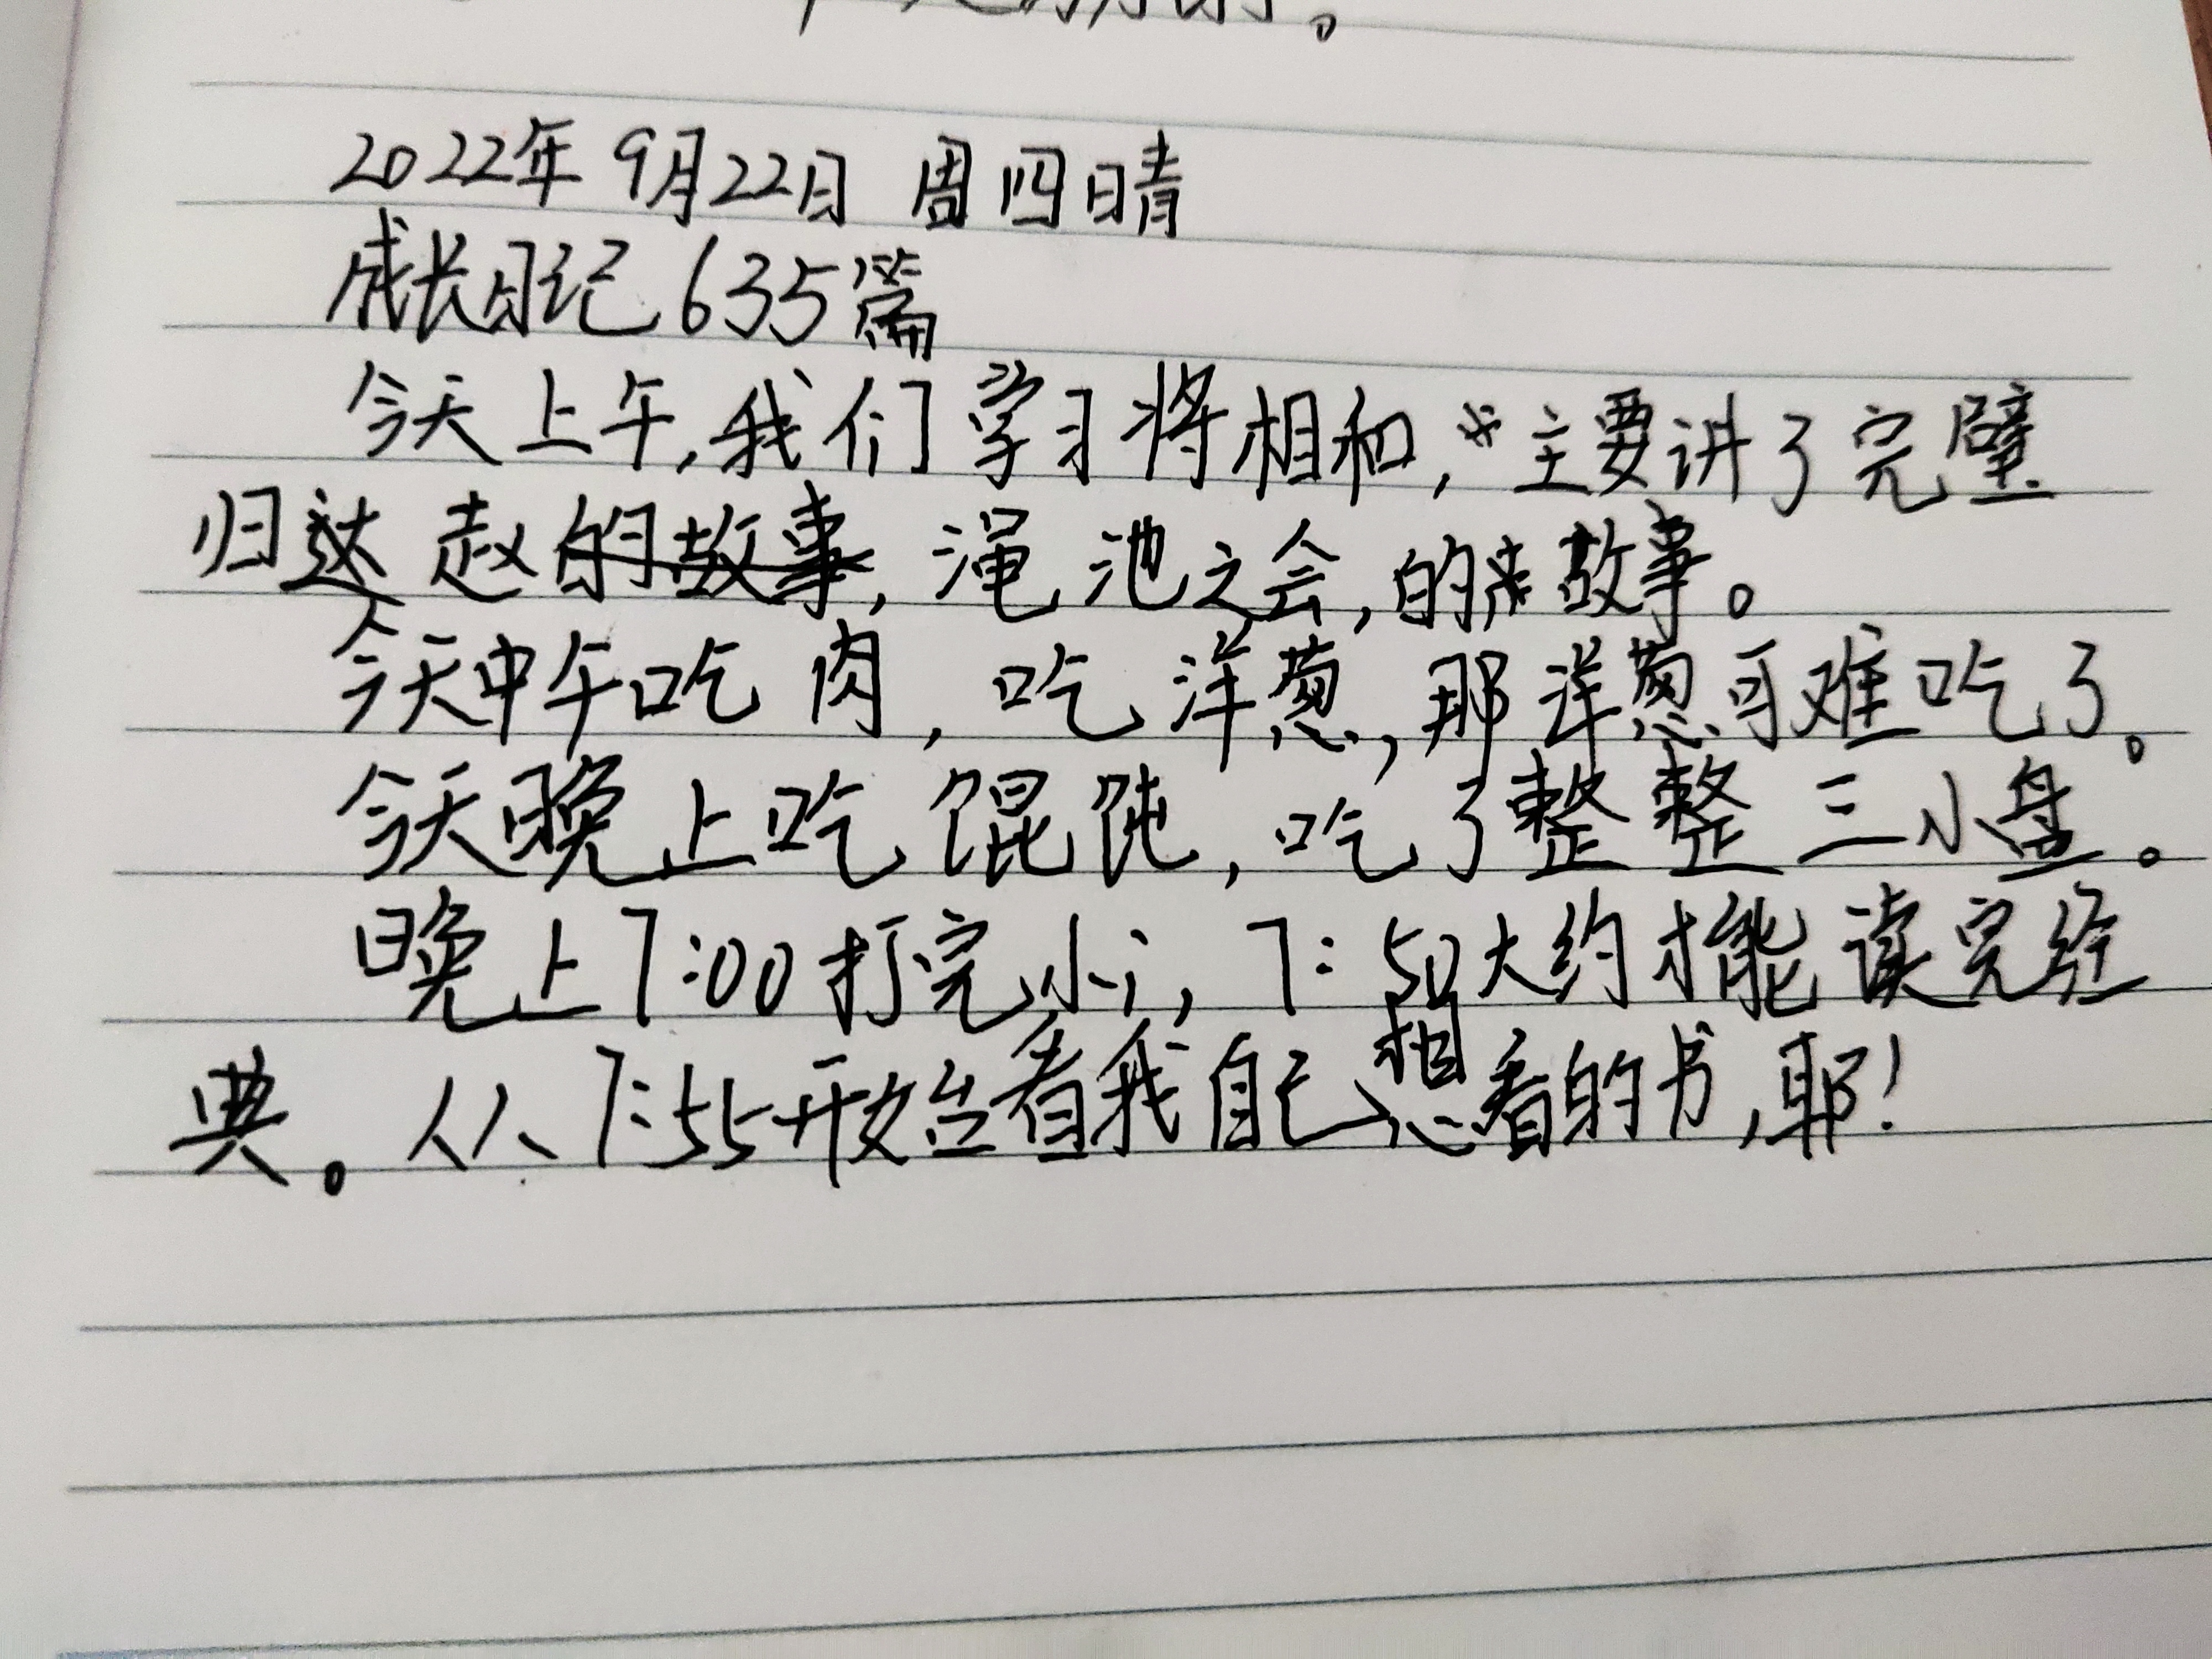 2022年9月22日 周四晴
成长日记635篇
今天上午,我们学习将相和,主要讲了完璧
归赵的故事,渑池之会,的故事。
今天中午吃肉,吃洋葱,那洋葱可难吃了。
今天晚上吃馄饨,吃了整整三小盘。
晚上7:00打完小i,7:50大约才能读完经
典。从7:55开始看我自己想看的书,耶!